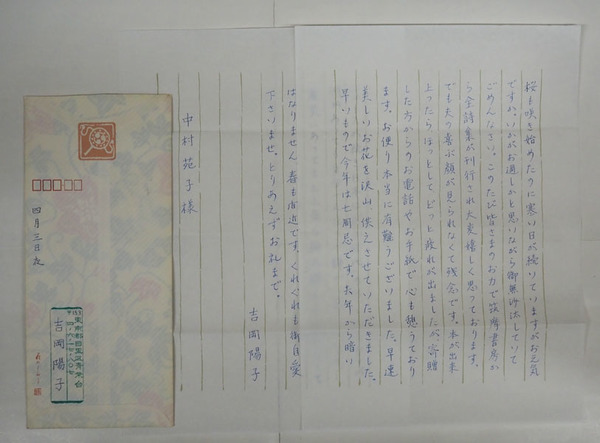 桜も咲き始めたのに寒い日が続いていますがお元気
ですか。いかがお過しかと思いながら御無沙汰していて
ごめんなさい。このたび皆さまのお力で筑摩書房か
ら全詩集が刊行され大変嬉しく思っております。
でも夫の喜ぶ顔が見られなくて残念です。本が出来
上ったらほっとしてどっと疲れが出ましたが寄贈
した方からのお電話やお手紙で心も憩うており
ます。お便り本当に有難うございました。早速
美しいお花を沢山供えさせていただきました。
早いもので今年は七回忌です。お年から暗い
はなりません 春も間近です。くれぐれも御自愛
下さいませ。とりあえずお礼まで。
吉岡陽子
中村苑子様
四月三日夜
東京都目黒区青葉台
吉岡陽子